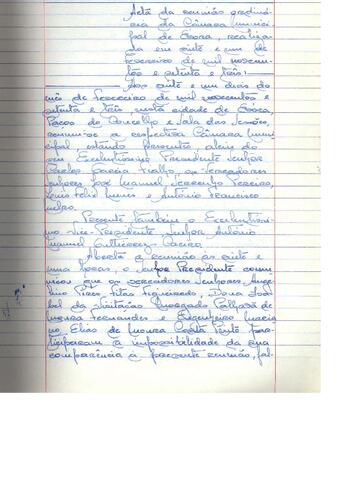 Acta da reunião ordiná-
ria da Câmara Munici-
pal de Évora, realiza-
da em vinte e um de
Fevereiro de mil nove-
centos e setenta e três:
Aos vinte e um dias do
mês de Fevereiro de mil novecentos e
setenta e três, nesta cidade de Évora,
Paços do Concelho e Sala das Sessões,
reuniu-se a respectiva Câmara Muni-
cipal estando presentes, além do
seu Excelentíssimo Presidente Senhor
Carlos Garcia os Vereadores
Senhores José Manuel Pereira,
Luís Félix Nunes e António Francisco
Presente também o Excelentíssi-
mo Vice-Presidente, Senhor António
Manuel Gutierrez
Aberta a reunião às vinte e
uma horas, o Senhor Presidente comu-
nicou que os vereadores Senhores, Ange-
lino Pires Figueiredo, Dona Isa-
bel da Visitação
Moura Fernandes e Engenheiro
no Elias de Moura Costa Pinto par-
ticiparam a impossibilidade da sua
comparência à presente reunião, fal-